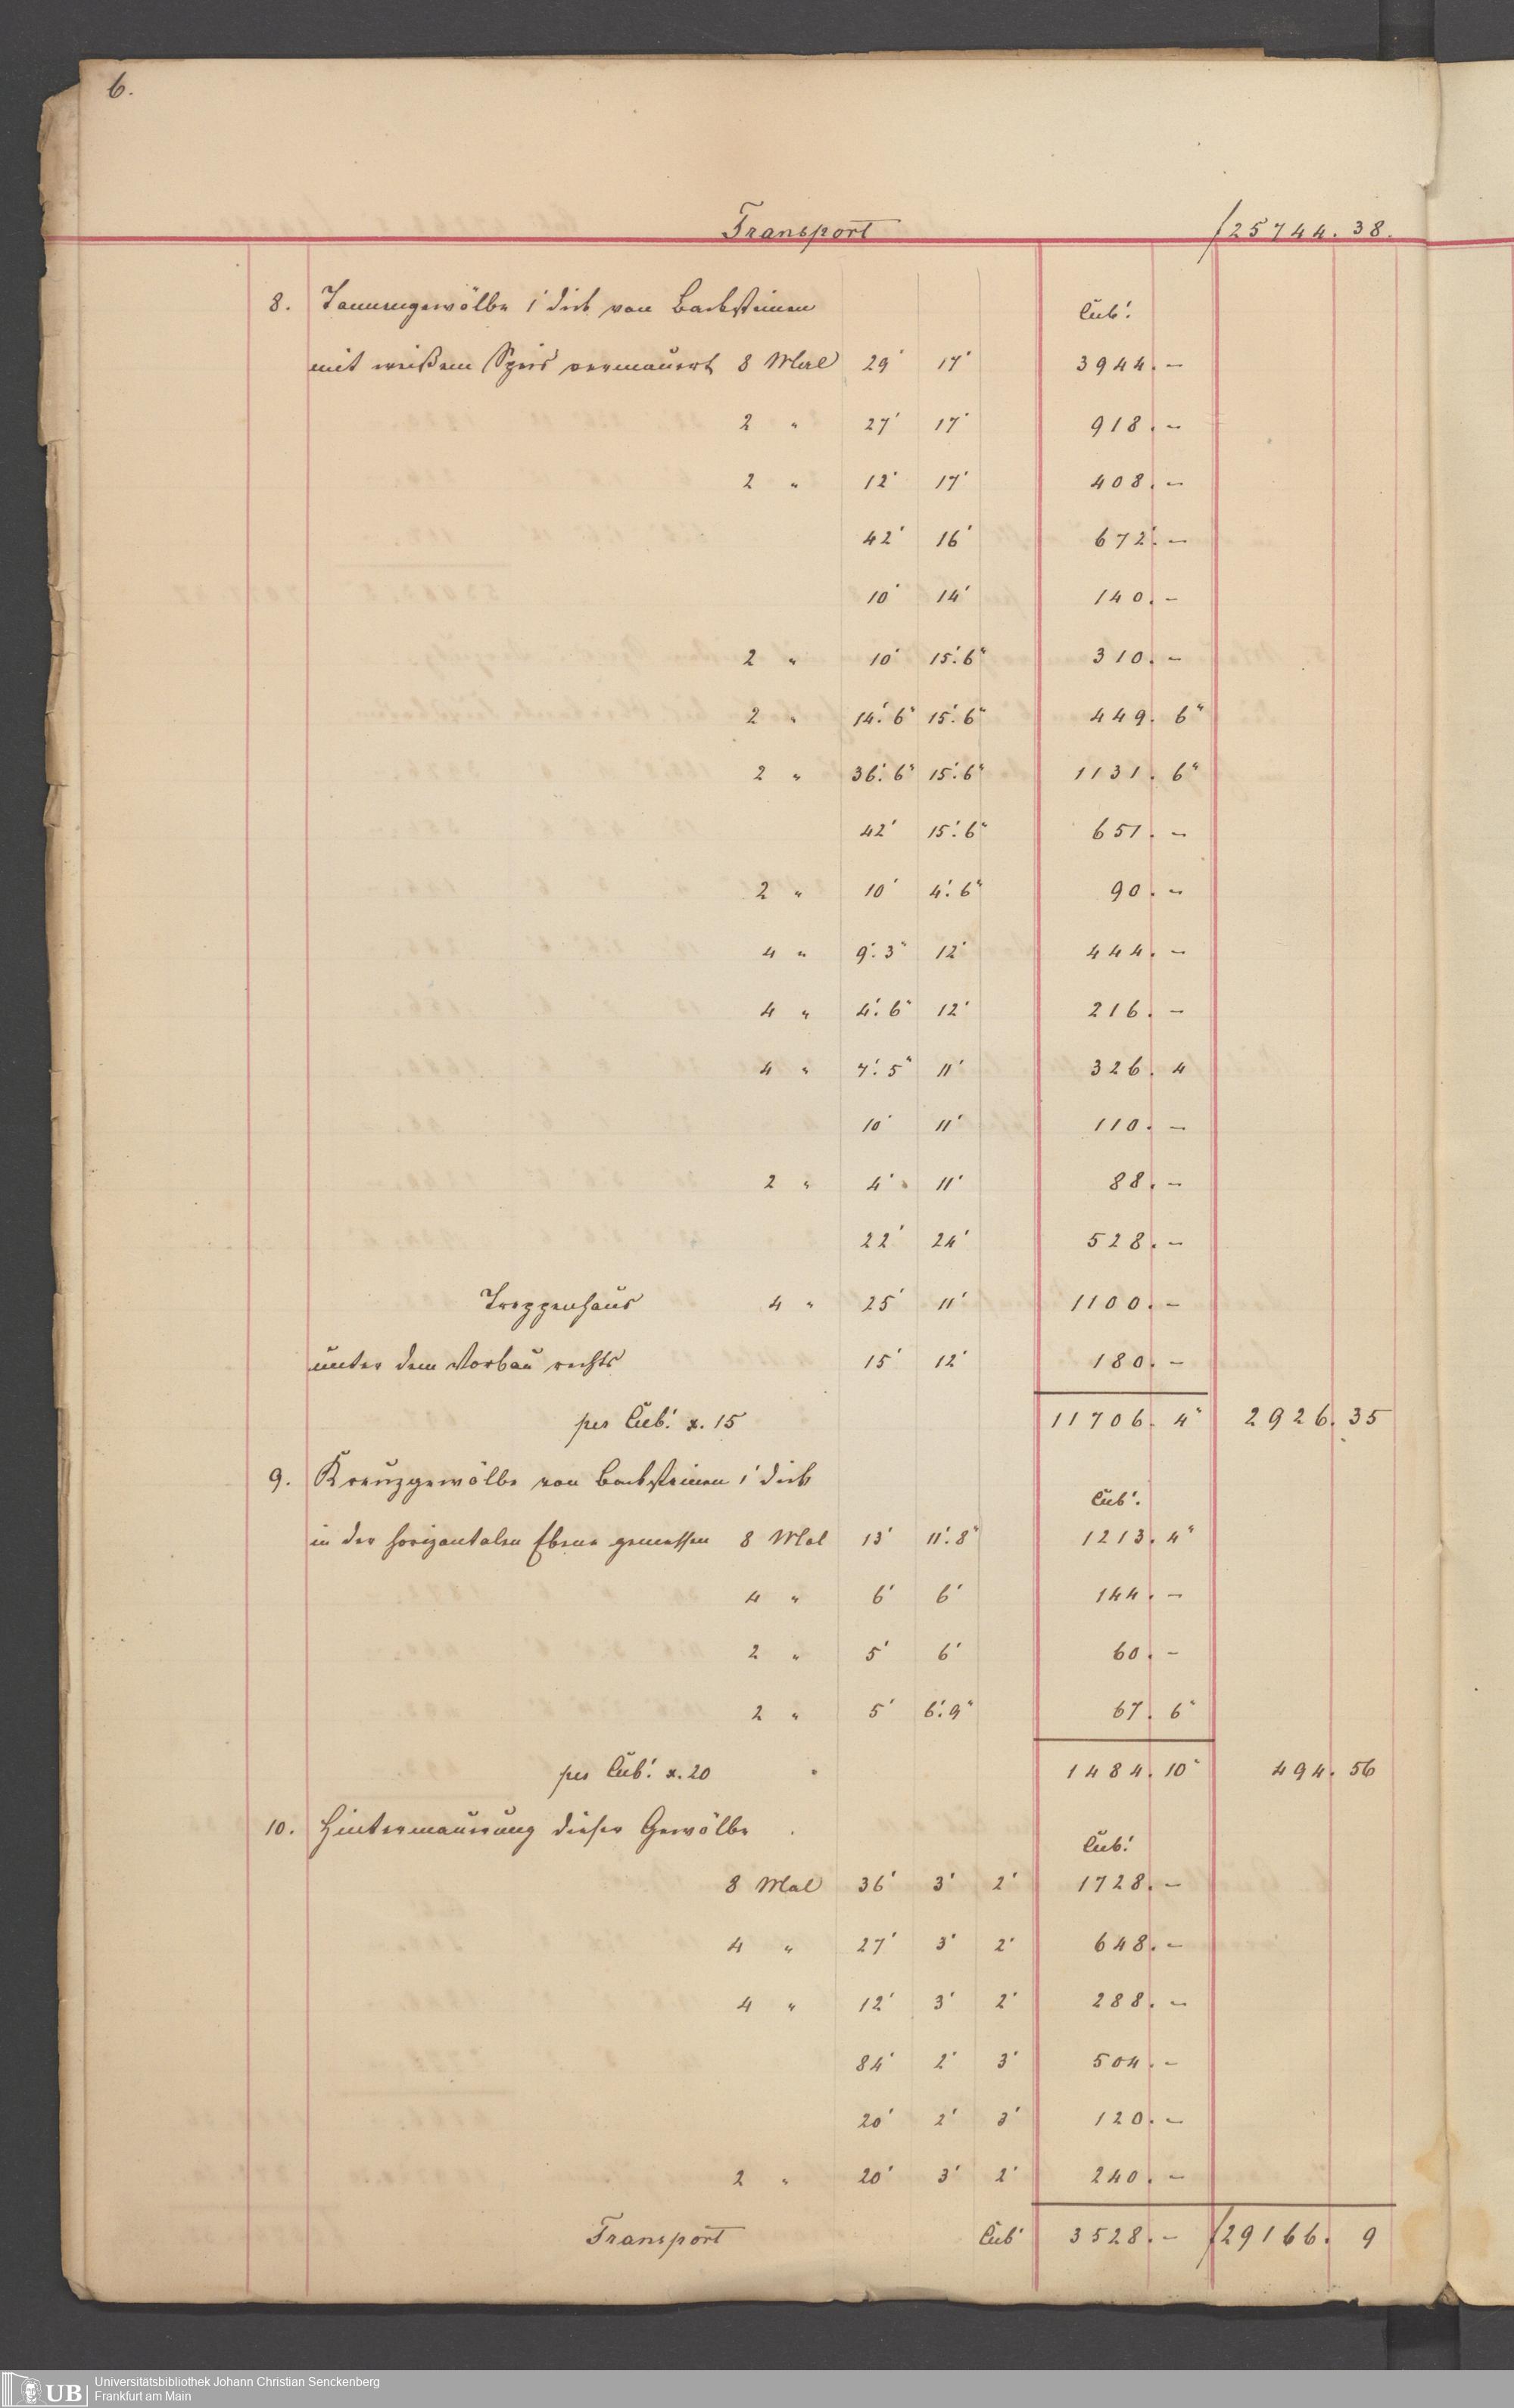 6.
Transport f 25744. 38.
8. Tonnengewölbe 1' dick von Backsteinen Cub'.
mit weißem Speis vermauert 8 Mal 29' 17' 3944. –
2 " 27' 17' 918. –
2 " 12' 17' 408. –
42' 16' 672. –
10' 14' 140. –
2 " 10' 15'.6" 310. –
2 " 14'.6" 15'.6" 449. 6"
2 " 36'.6" 15'.6" 1131. 6"
42' 15'.6" 651. –
2 " 10' 4'.6" 90. –
4 " 9'.3" 12' 444. –
4 " 4'.6" 12' 216. –
4 " 7'.5" 11' 326. 4
10' 11' 110. –
2 " 4' 11' 88. –
22' 24' 528. –
Treppenhaus 4 " 25' 11' 1100. –
unter dem Vorbau rechts 15' 12' 180. –
per Cub'. x. 15 11706. 4" 2926. 35
9. Kreuzgewölbe von Backsteinen 1' dick Cub'.
in der horizontalen Ebene gemessen 8 Mal 13' 11'.8" 1213. 4"
4 " 6' 6' 144. –
2 " 5' 6' 60. –
2 " 5' 6'.9" 67. 6"
per Cub'. x. 20 1484. 10" 494. 56
10. Hintermauerung dieser Gewölbe Cub'.
8 Mal 36' 3' 2' 1728. –
4 " 27' 3' 2' 648. –
4 " 12' 3' 2' 288. –
84' 2' 3' 504. –
20' 2' 3' 120. –
2 " 20' 3' 2' 240. –
Transport Cub' 3528. – f 29166. 9
UB Universitätsbibliothek Johann Christian Senckenberg
Frankfurt am Main